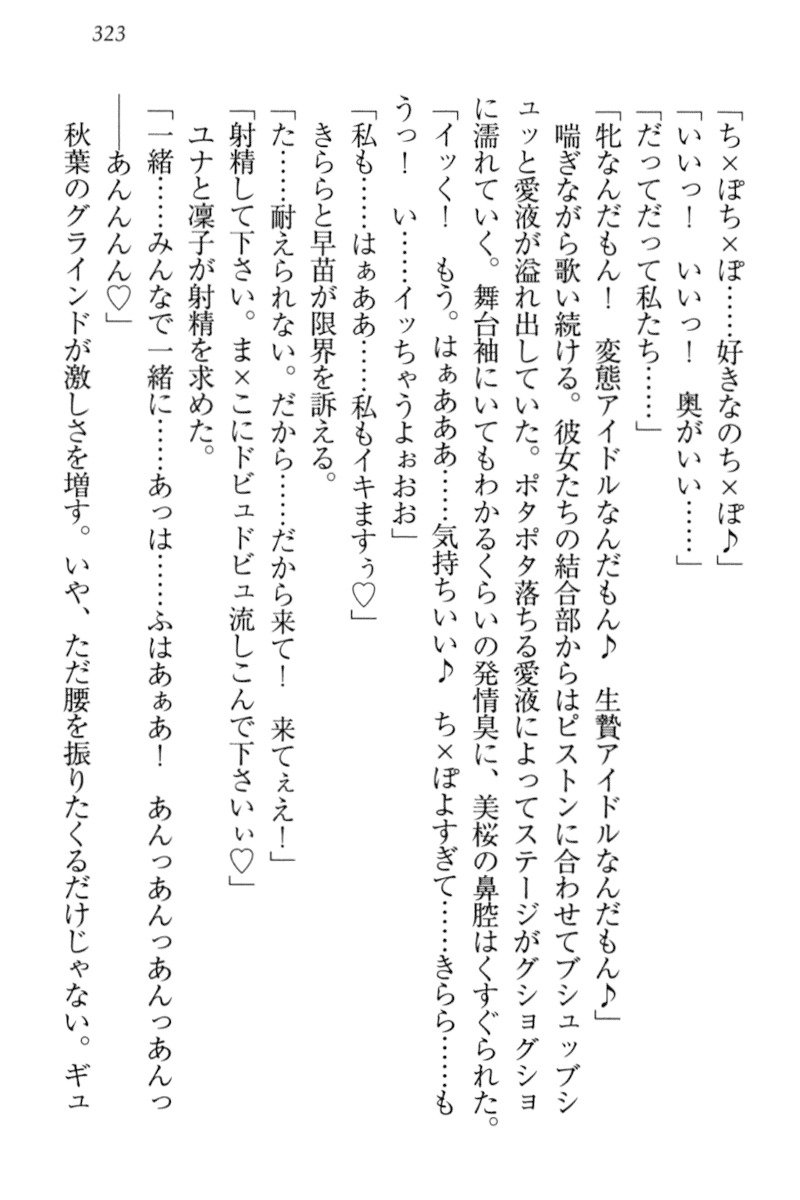 323
「ち×ぽち×ぽ……好きなのち×ぽ♪」
「いいっ！　いいっ！　奥がいい……」
「だってだって私たち……」
「牝なんだもん！　変態アイドルなんだもん♪　生贄アイドルなんだもん♪」
　喘ぎながら歌い続ける。彼女たちの結合部からはピストンに合わせてブシュッブシ
ュッと愛液が溢れ出していた。ポタポタ落ちる愛液によってステージがグショグショ
に濡れていく。舞台袖にいてもわかるくらいの発情臭に、美桜の鼻腔はくすぐられた。
「イッく！　もう。はぁあああ……気持ちいい♪　ち×ぽよすぎて……きらら……も
うっ！　い……イッちゃうよぉおお」
「私も……はぁああ……私もイキますぅ♡」
　きららと早苗が限界を訴える。
「た……耐えられない。だから……だから来て！　来てぇえ！」
「射精して下さい。ま×こにドビュドビュ流しこんで下さいぃ♡」
　ユナと凜子が射精を求めた。
「一緒……みんなで一緒に……あっは……ふはあぁあ！　あんっあんっあんっあんっ
――あんんんん♡」
　秋葉のグラインドが激しさを増す。いや、ただ腰を振りたくるだけじゃない。ギュ